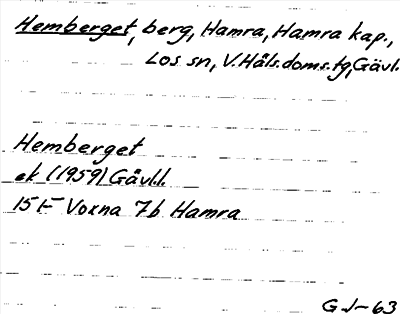 Hemberget, berg, Hamra, Hamra kap.,
Los sn, V. Häls. doms. tg, Gävl.
Hemberget
ek (1959) Gävl.l.
15t- Voxna 7b Hamra
GJ-63